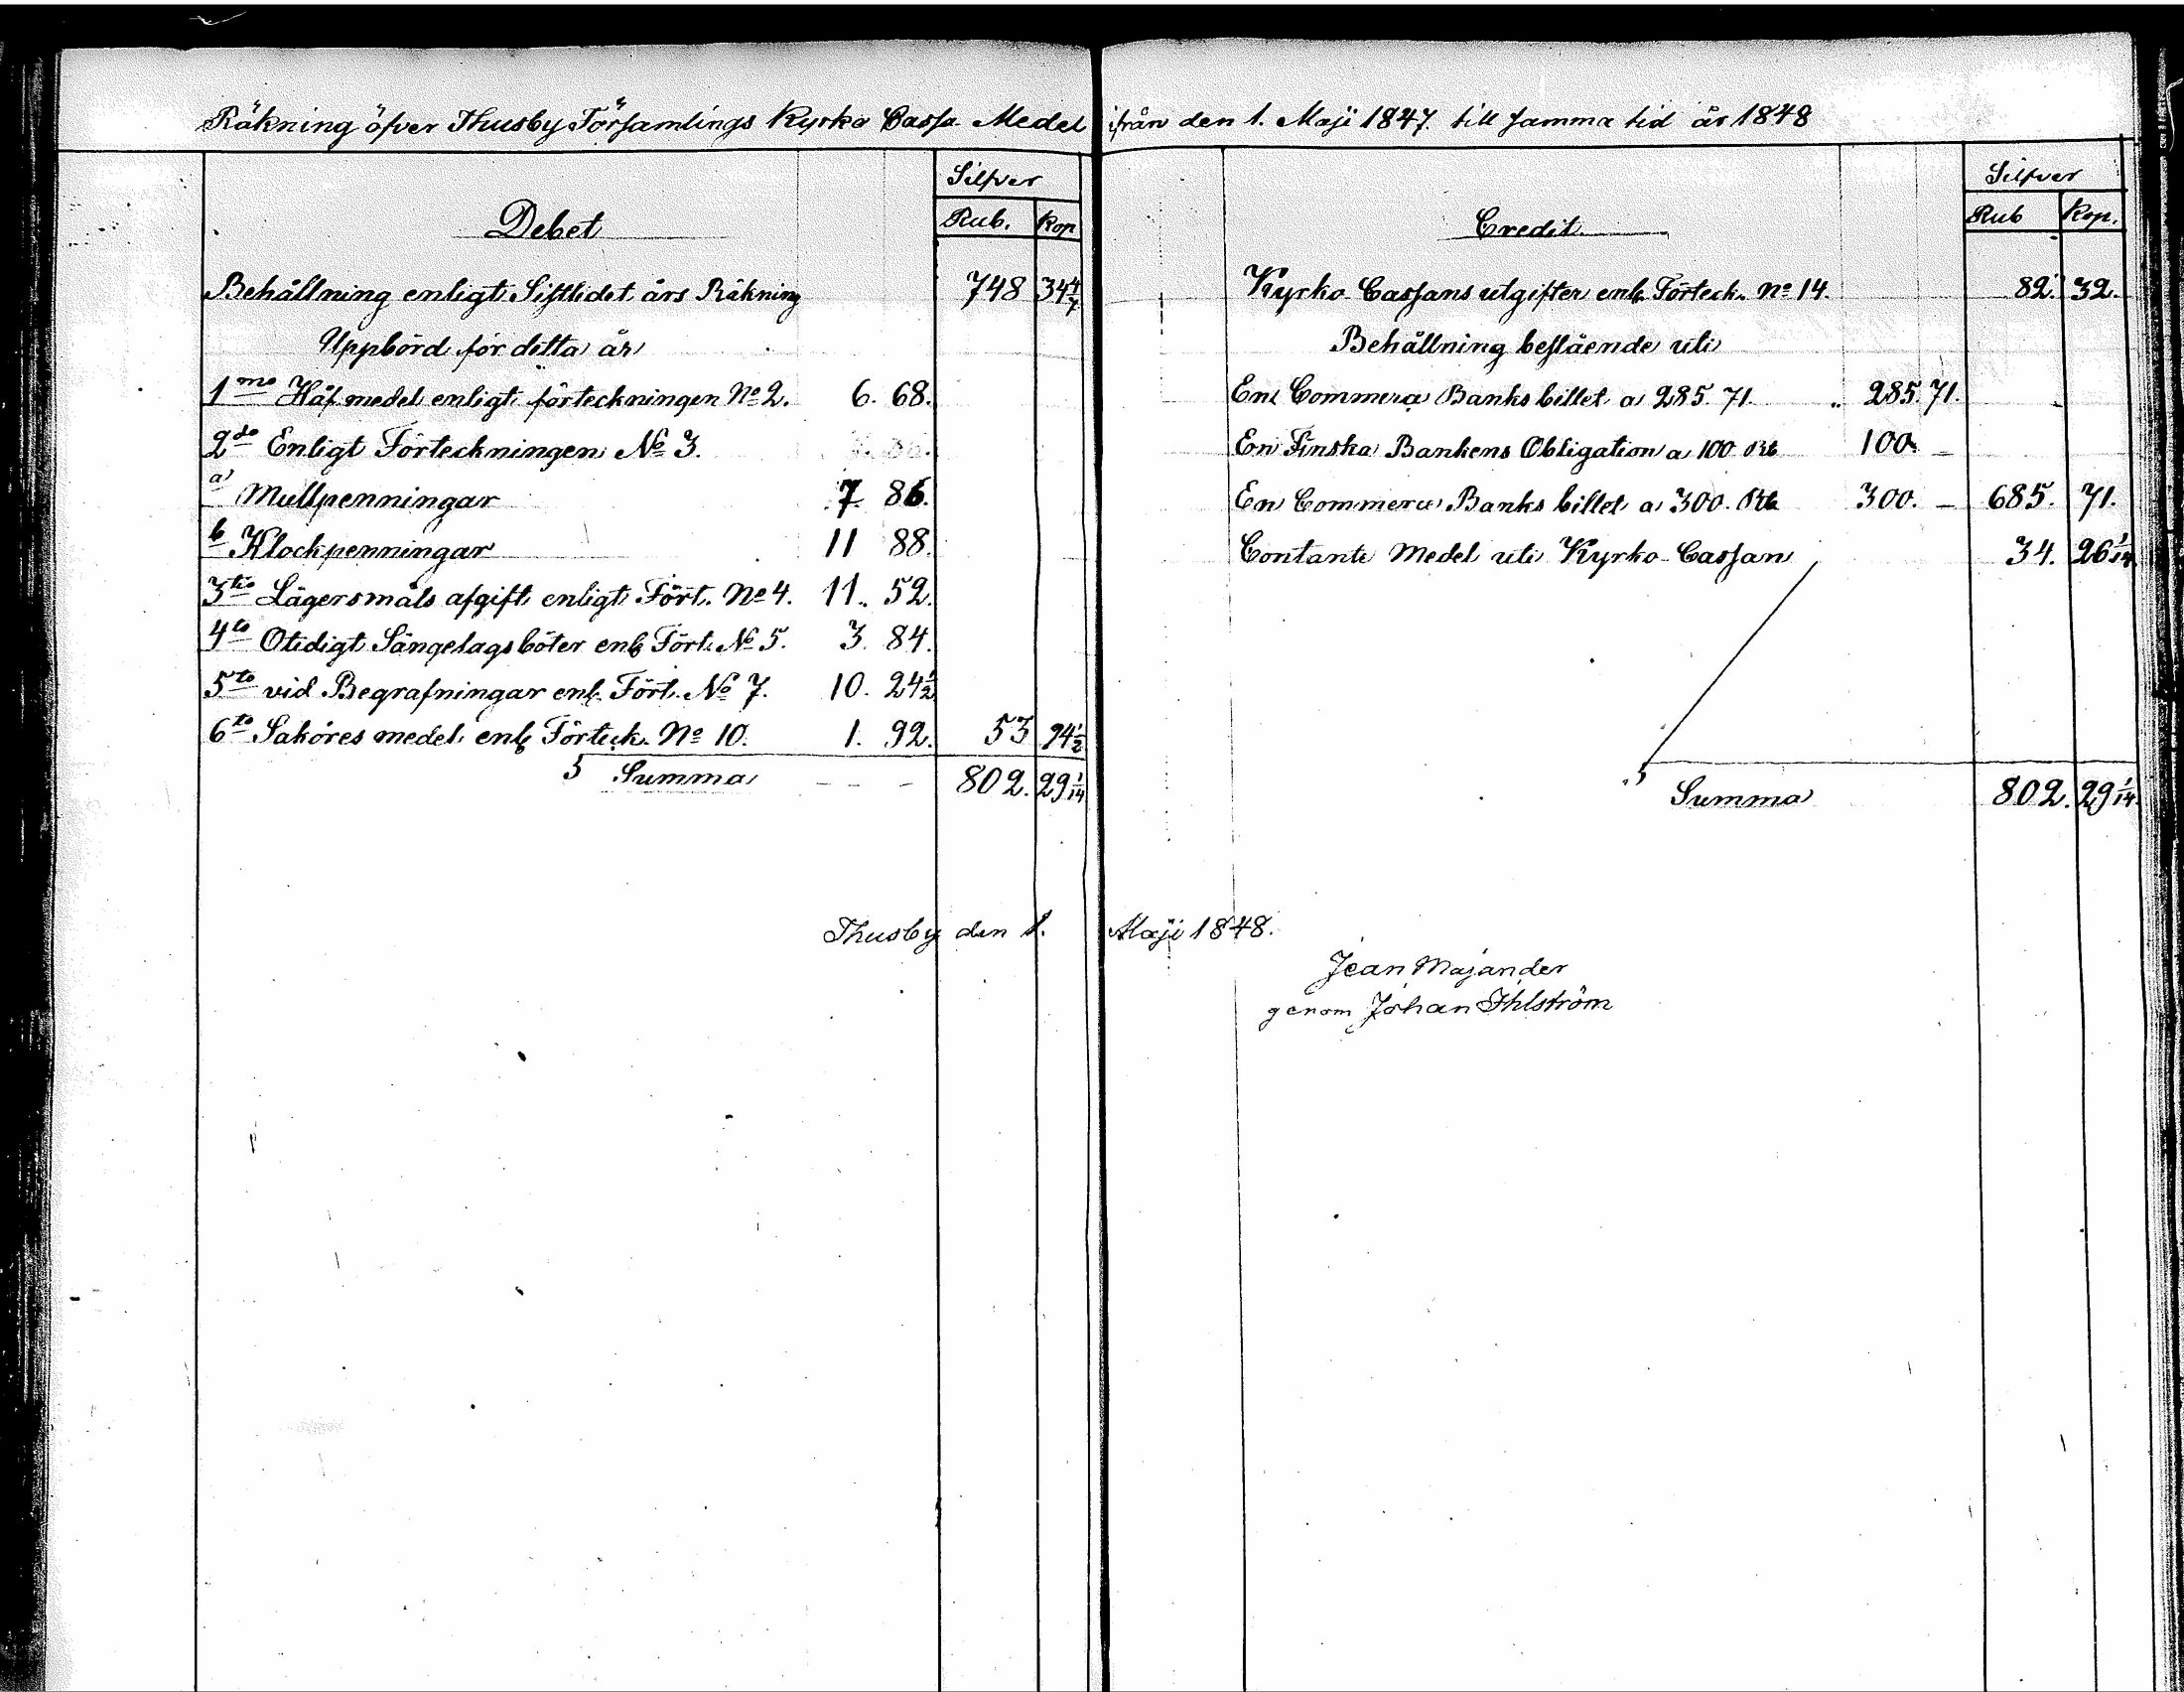 Räkning öfver Thusby Församlings Kyrko Cassa Medel ifrån den 1. Maji 1847. till samma tid år 1848
Silfver
Debet Rub. Kop
Behållning enligt Sistledet års Räkning 748 34 4/7
Uppbörd för detta år
1mo Håf medel enligt förteckningen No 2. 6. 68.
2do Enligt Förteckningen No 3.
a Mullpenningar 7. 86.
b Klockpenningar 11 88.
3tio Lägersmåls afgift enligt Fört. No 4. 11. 52.
4to Otidigt Sängelags böter enl Fört. No 5. 3. 84.
5to vid Begrafningar enl. Fört. No 7. 10. 24 1/2
6to Saköres medel enl Förteck. No 10. 1. 92. 53 94 1/2
Summa - - - 802. 29 1/14
Silfver
Credit Rub Kop.
Kyrko Cassans utgifter enl. Förteck. No 14. 82. 32.
Behållning bestående uti
En Commerce Banks billet a 285. 71. 285. 71.
En Finska Bankens Obligation a 100 Rb 100. -
En Commerce Banks billet a 300. Rb 300. - 685. 71.
Contante Medel uti Kyrko Cassan 34. 26 1/14
Summa 802. 29 1/14
Thusby den 1. Maji 1848.
Jean Majander
genom Johan Ihlström